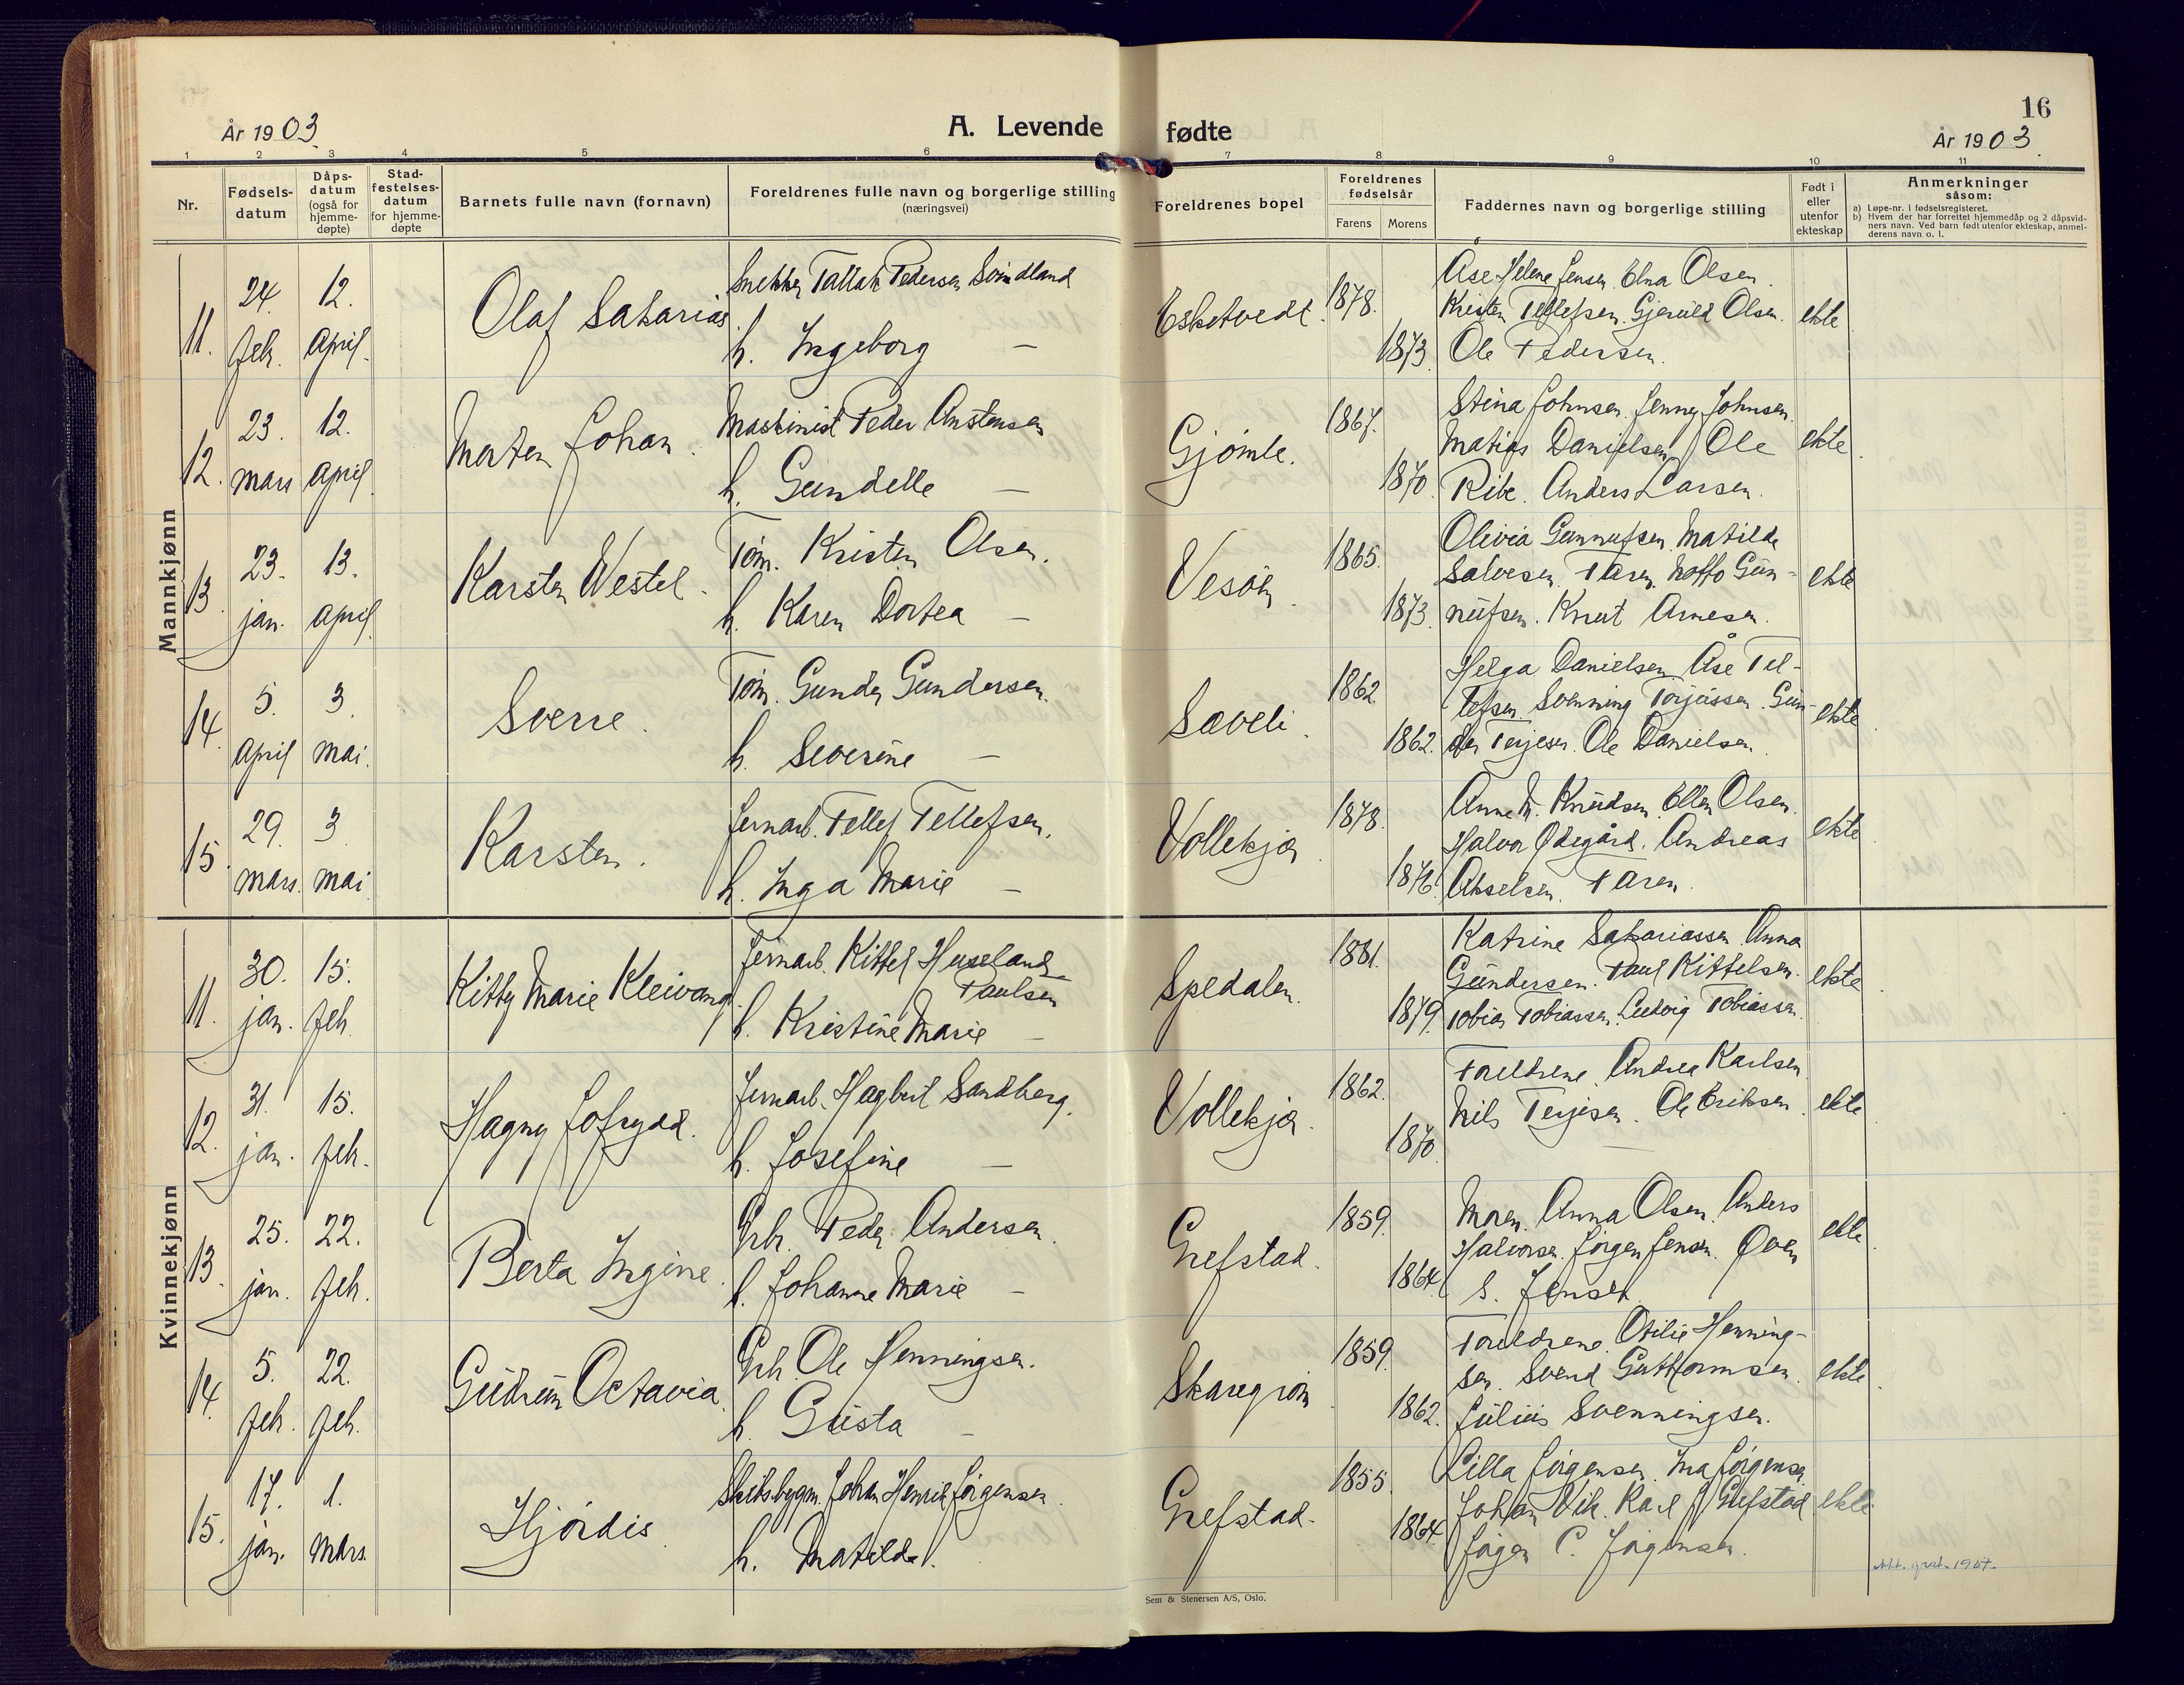 16
År 1903.
A. Levende fødte
År 1903.
1 2 3 4 5 6 7 8 9 10 11
Nr.
Fødsels-datum
Dåps-datum (også for hjemme-døpte)
Stad-festelses-datum for hjemme-døpte
Barnets fulle navn (fornavn)
Foreldrenes fulle navn og borgerlige stilling (næringsvei)
Foreldrenes bopel
Foreldrenes fødselsår
Farens Morens
Faddernes navn og borgerlige stilling
Født i eller utenfor ekteskap
Anmerkninger såsom:
a) Løpe-nr. i fødselsregisteret.
b) Hvem der har forrettet hjemmedåp og 2 dåpsvid-
ners navn. Ved barn født utenfor ekteskap, anmel-
derens navn o. l.
Mannkjønn
11. 24. feb. 12. april. Olaf Sakarias.
Snekker Tallak Pedersen Svindland
h. Ingeborg —
Esketvedt. 1878. 1873.
Åse Helene Jensen. Elna Olsen.
Kristen Tellefsen. Gjeruld Olsen.
Ole Pedersen.
ekte
12. 23. mars 12. april Morten Johan.
Maskinist Peder Anstensen
h. Gundelle —
Gjømle. 1867. 1870.
Stina Johnsen. Jenny Johnsen.
Matias Danielsen. Ole
Ribe. Anders Larsen.
ekte
13. 23. jan. 13. april Karsten Westel.
Tøm. Kristen Olsen.
h. Karen Dortea —
Vesøen. 1865. 1873.
Olivia Gunnufsen. Matilde
Salvesen. Faren. Noffo Gun-
nufsen. Knut Arnesen.
ekte
14. 5. april 3. mai. Sverre.
Tøm. Gunder Gundersen.
h. Severine —
Saveli. 1862. 1862.
Helga Danielsen. Åse Tel-
lefsen. Svenning Torjussen. Gun-
der Terjesen. Ole Danielsen.
ekte
15. 29. mars. 3. mai Karsten.
Jernarb. Tellef Tellefsen.
h. Inga Marie —
Vollekjær. 1878. 1876.
Anne M. Knudsen. Ellen Olsen.
Halvor Ødegård. Andreas
Akselsen. Faren.
ekte
Kvinnekjønn
11. 30. jan. 15. feb. Kitty Marie Kleivang.
Jernarb. Kittel Huseland
Paulsen
h. Kristine Marie —
Spedalen. 1881. 1879.
Katrine Sakariassen. Anna
Gundersen. Paul Kittelsen.
Tobias Tobiassen. Ludvig Tobiassen.
ekte
12. 31. jan. 15. feb. Hagny Jofrydd.
Jernarb. Hagbert Sandberg.
h. Josefine —
Vollekjær. 1862. 1870.
Foreldrene. Andrea Karlsen.
Nils Terjesen. Ole Eriksen.
ekte
13. 25. jan. 22. feb. Berta Ingine.
Grb. Peder Andersen.
h. Johanne Marie —
Grefstad. 1859. 1864.
Moren. Anna Olsen. Anders
Halvorsen. Jørgen Jensen. Øven
S. Jensen
ekte
14. 5. feb. 22. feb. Gudrun Octavia.
Grb. Ole Henningsen.
h. Gusta —
Skaregrøm. 1859. 1862.
Foreldrene. Otilie Henning-
sen. Svend Guttormsen.
Julius Svenningsen.
ekte
15. 17. jan. 1. mars. Hjørdis
Skibsbygm. Johan Henrik Jørgensen.
h. Matilde.
Grefstad. 1855. 1864.
Lilla Jørgensen. Ina Jørgensen
Johan Vik. Karl J. Grefstad.
Jørgen C. Jørgensen.
ekte
1967.
Sem & Stenersen A/S, Oslo.